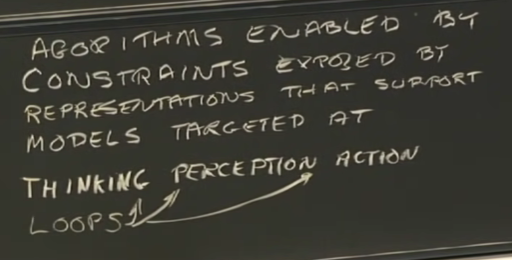 AGORITHMS ENABLED BY
CONSTRAINTS EXPOSED BY
REPRESENTATIONS THAT SUPPORT
MODELS TARGETED AT
THINKING PERCEPTION ACTION
LOOPS